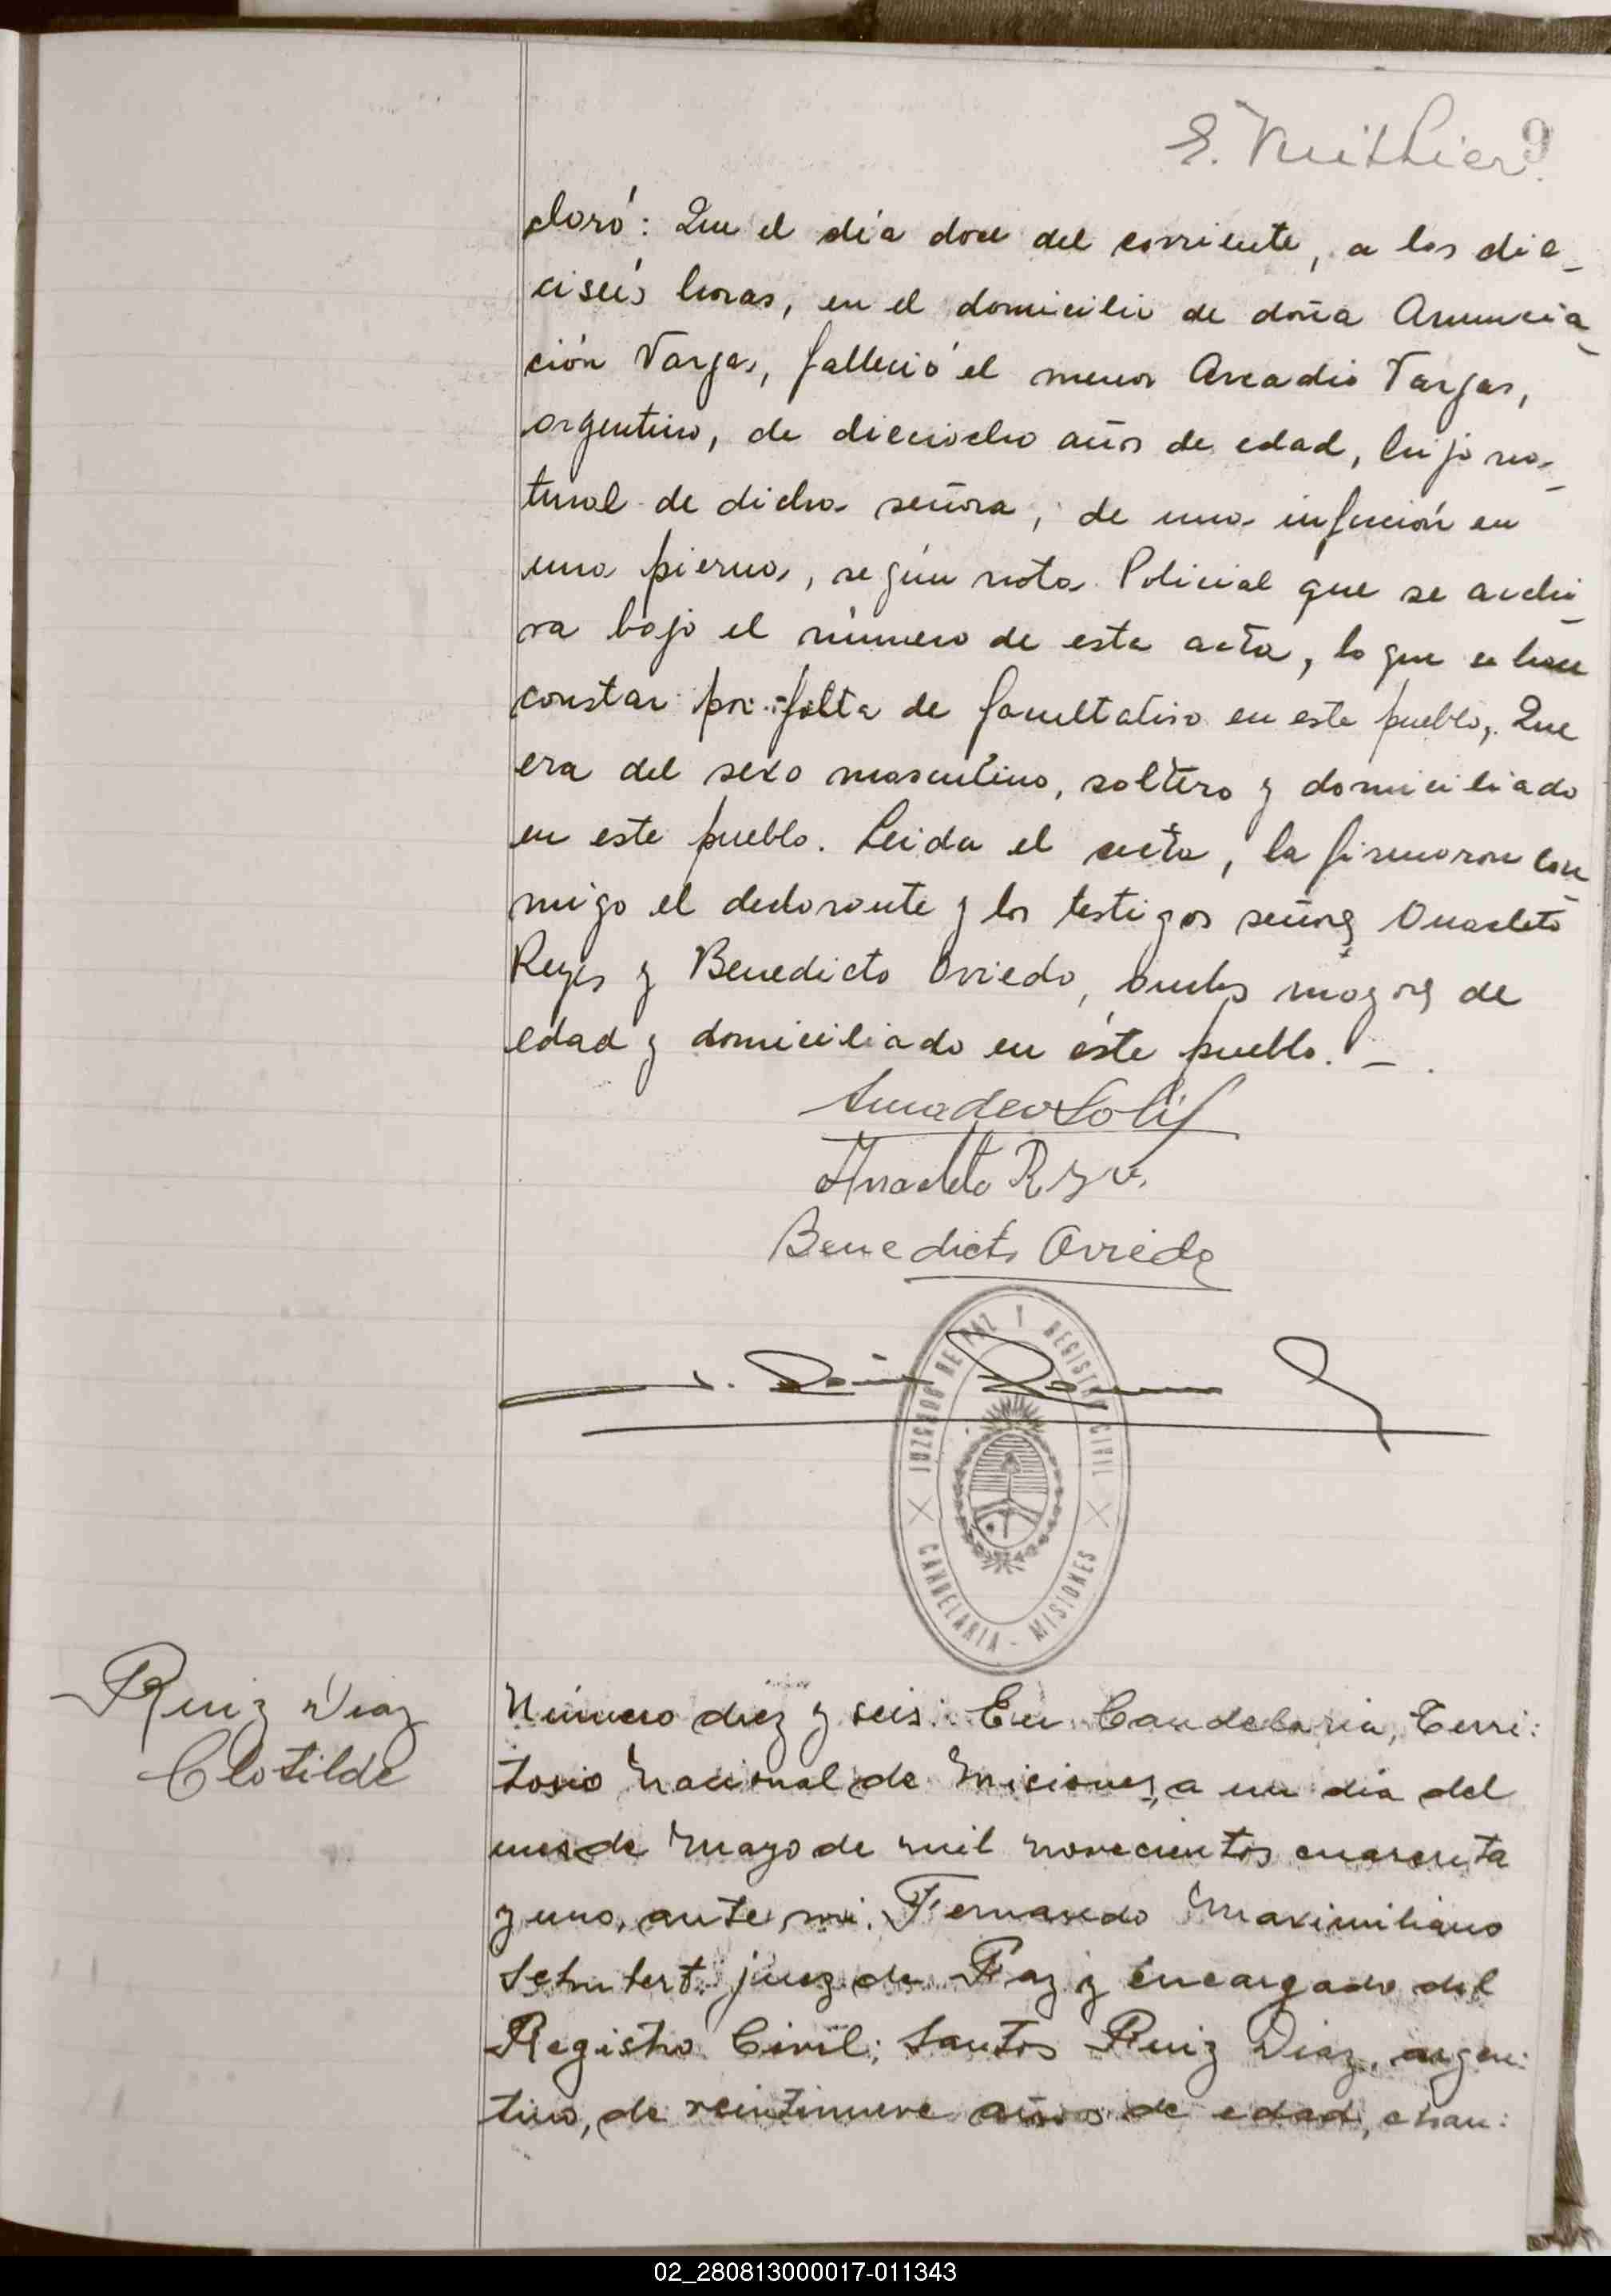 9
claró: Que el día doce del corriente, a las die_
ciseis horas, en el domicilio de doña Anuncia_
ción Vargas, falleció el menor Arcadio Vargas,
argentino, de dieciocho años de edad, hijo na_
tural de dicha señora, de una infección en
una pierna, según nota Policial que se archi_
va bajo el número de esta acta, lo que se hace
constar por falta de facultativo en este pueblo, Que
era del sexo masculino, soltero y domiciliado
en este pueblo. Leida el acta, la firmaron con_
migo el declarante y los testigos señores Anacleto
Reyes y Benedicto Oviedo, ambos mayores de
edad y domiciliado en éste pueblo. _ .
Amadeo Solis
Anacleto
Benedicto Oviedo
JUZGADO DE PAZ Y REGISTRO CIVIL
CANDELARIA - MISIONES
Ruiz Diaz
Clotilde
Número diez y seis: En Candelaria, Terri:
torio Nacional de Misiones, a un día del
mes de Mayo de mil novecientos cuarenta
y uno, ante mi. Fernando Maximiliano
Schubert juez de Paz y Encargado del
Registro Civil; Santos Ruiz Diaz, argen:
tino, de veintinueve años de edad, chau:
02_280813000017-011343